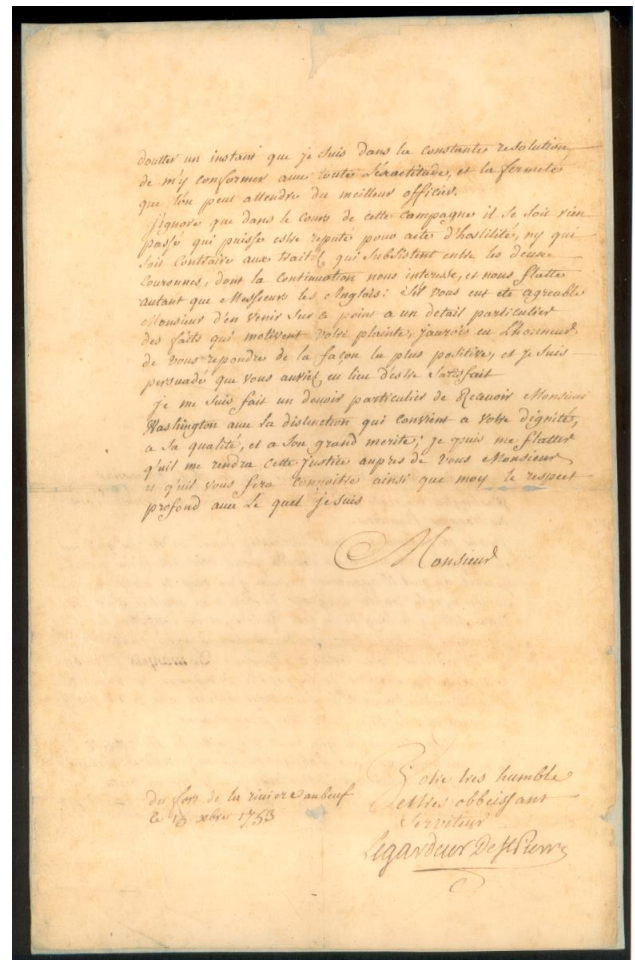 doutter un instant que je suis dans la constante resolution
de m'y conformer avec toute L'exactitude, et la fermeté
que l'on peut attendre du meilleur officier.
J'ignore que dans le cours de cette campagne il se soit rien
passé qui puisse estre reputé pour acte d'hostilité, ny qui
soit contraire aux traitéz qui subsistent entre les deux
couronnes, dont la continuation nous interesse, et nous flatte
autant que Messieurs les Anglois: s'il vous eut été agreable
Monsieur d'en venir sur ce point a un detail particulier
des faits qui motivent votre plainte, j'aurois eu L'honneur
de vous repondre de la façon la plus positive, et je suis
persuadé que vous auriéz eu lieu d'estre satisfait
je me suis fait un devoir particulier de Recevoir Monsieur
Washington avec la distinction qui convient a votre dignité,
a sa qualité, et a son grand merite; je puis me flatter
qu'il me rendra cette justice aupres de vous Monsieur
et qu'il vous fera connoitre ainsi que moy le respect
profond avec le quel je suis
Monsieur
Votre tres humble
et tres obbeissant
serviteur
Legardeur De St Pierre
du fort de la riviere au beuf
le 15 xbre 1753